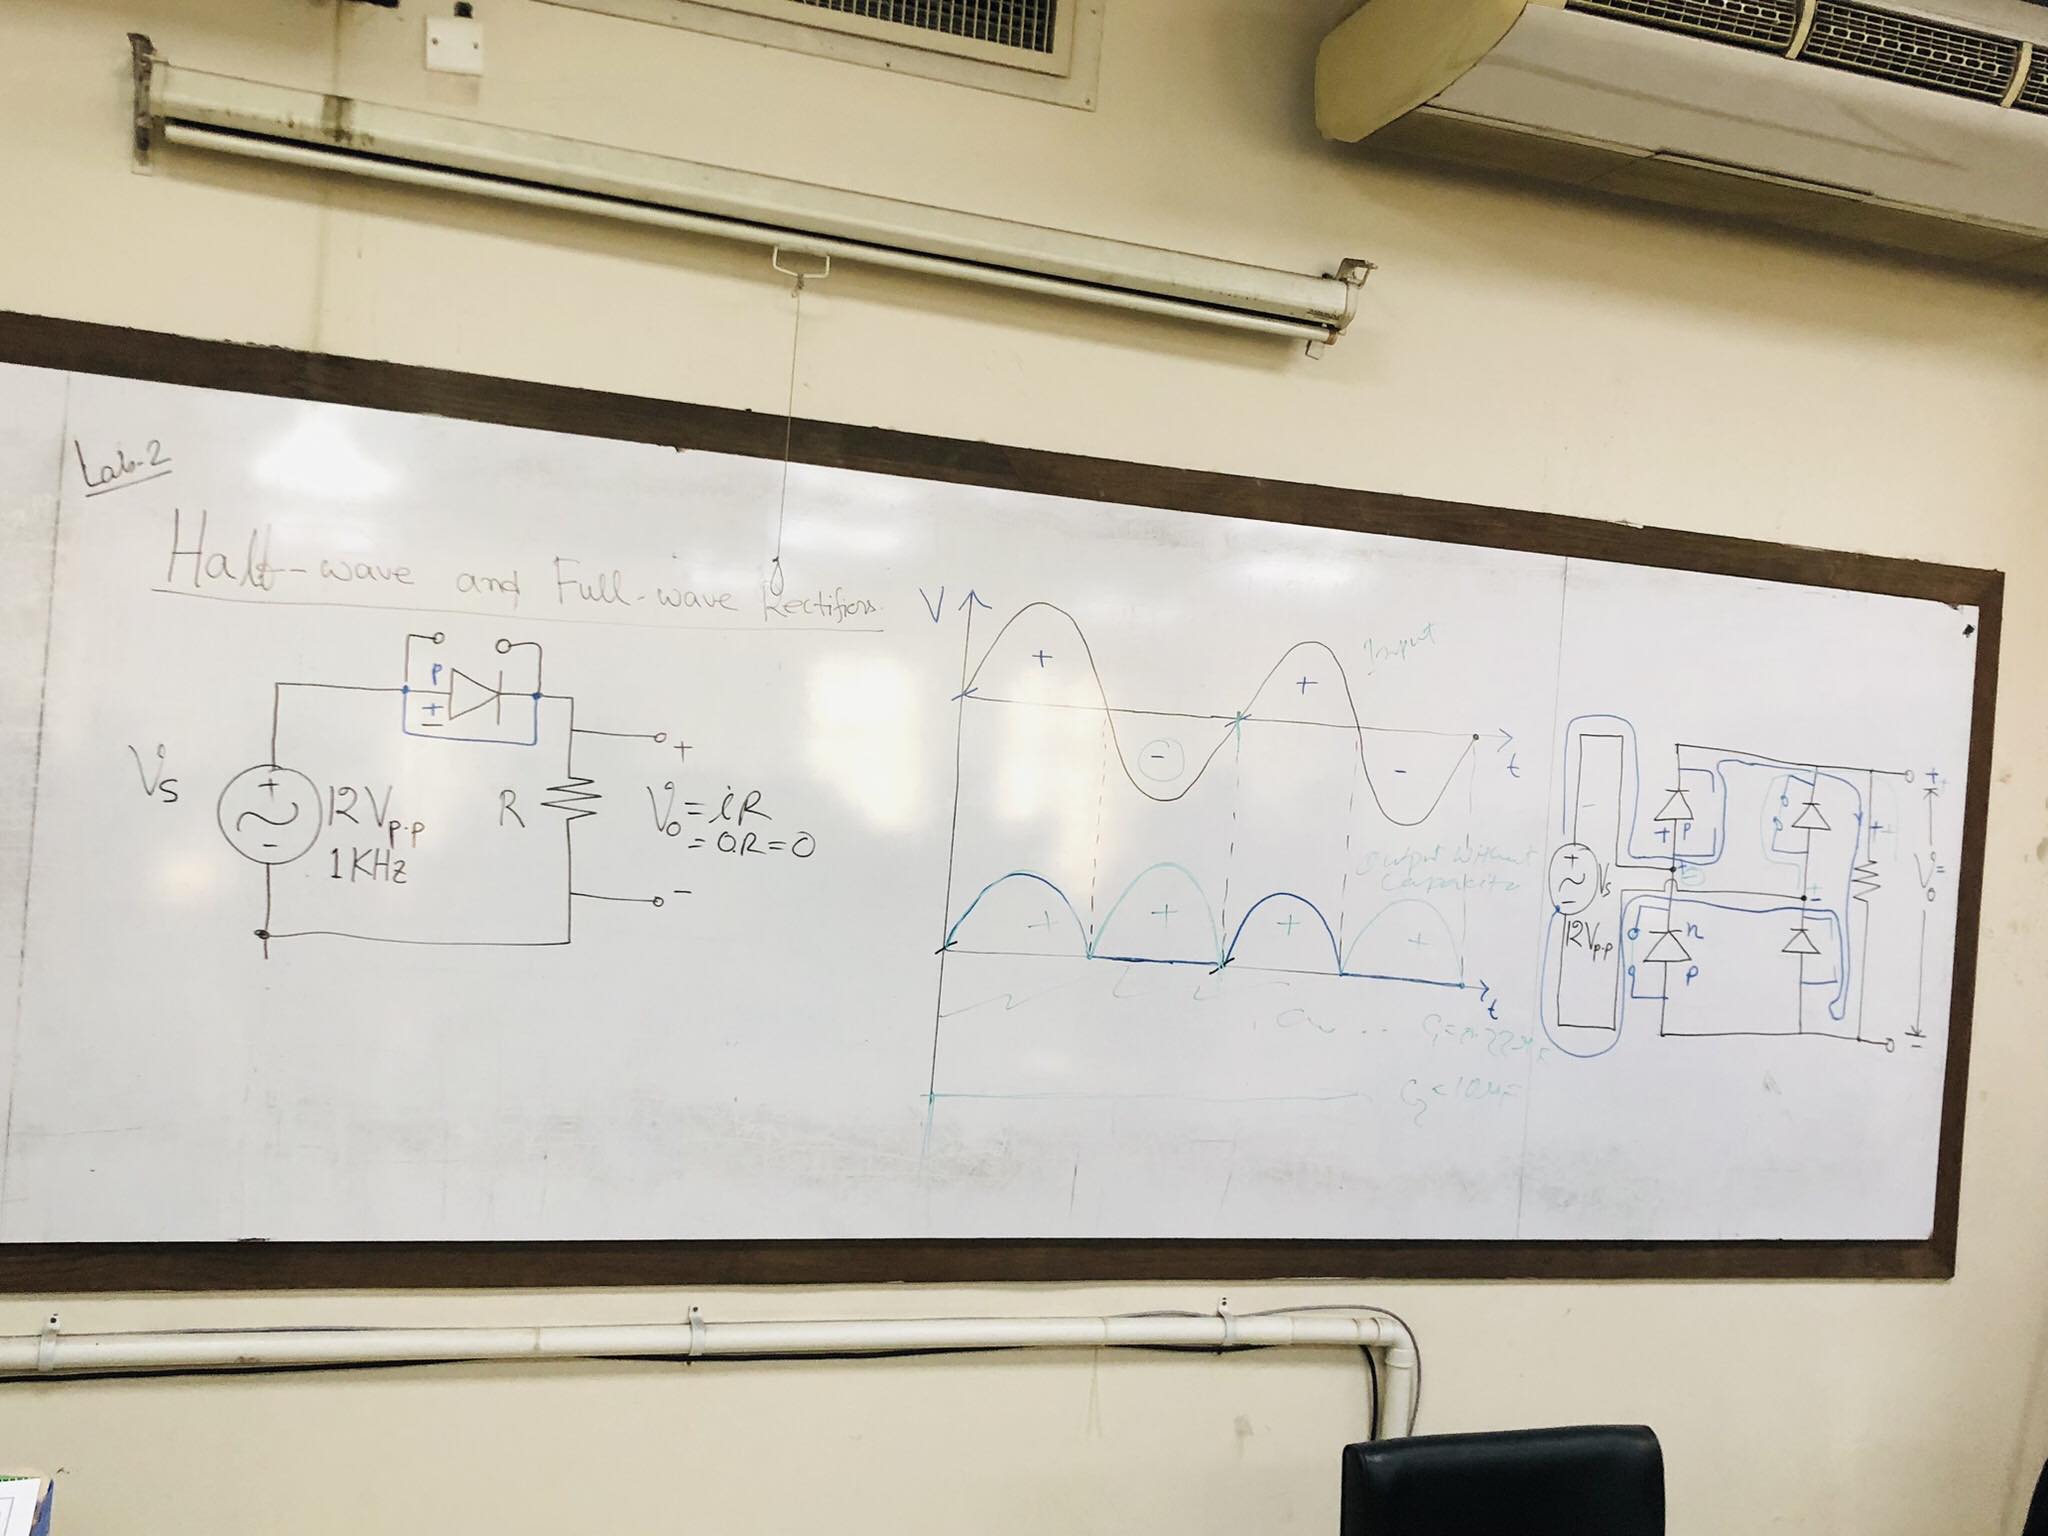 Lab-2
Half-wave and Full-wave Rectifiers.
P
+
-
Vs
+
-
12Vp.p
1KHz
R
+
Vo = iR
= 0.R = 0
-
V
+
-
+
-
Input
t
Output without
Capacitor
+
+
+
+
t
+
-
Vs
12Vp-p
+ P
P
+
-
n
P
+
+
Vo =
-